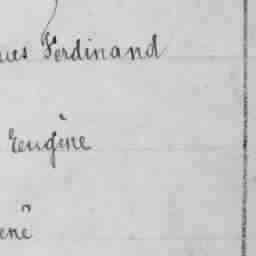 ues Ferdinand
Eugène
ene